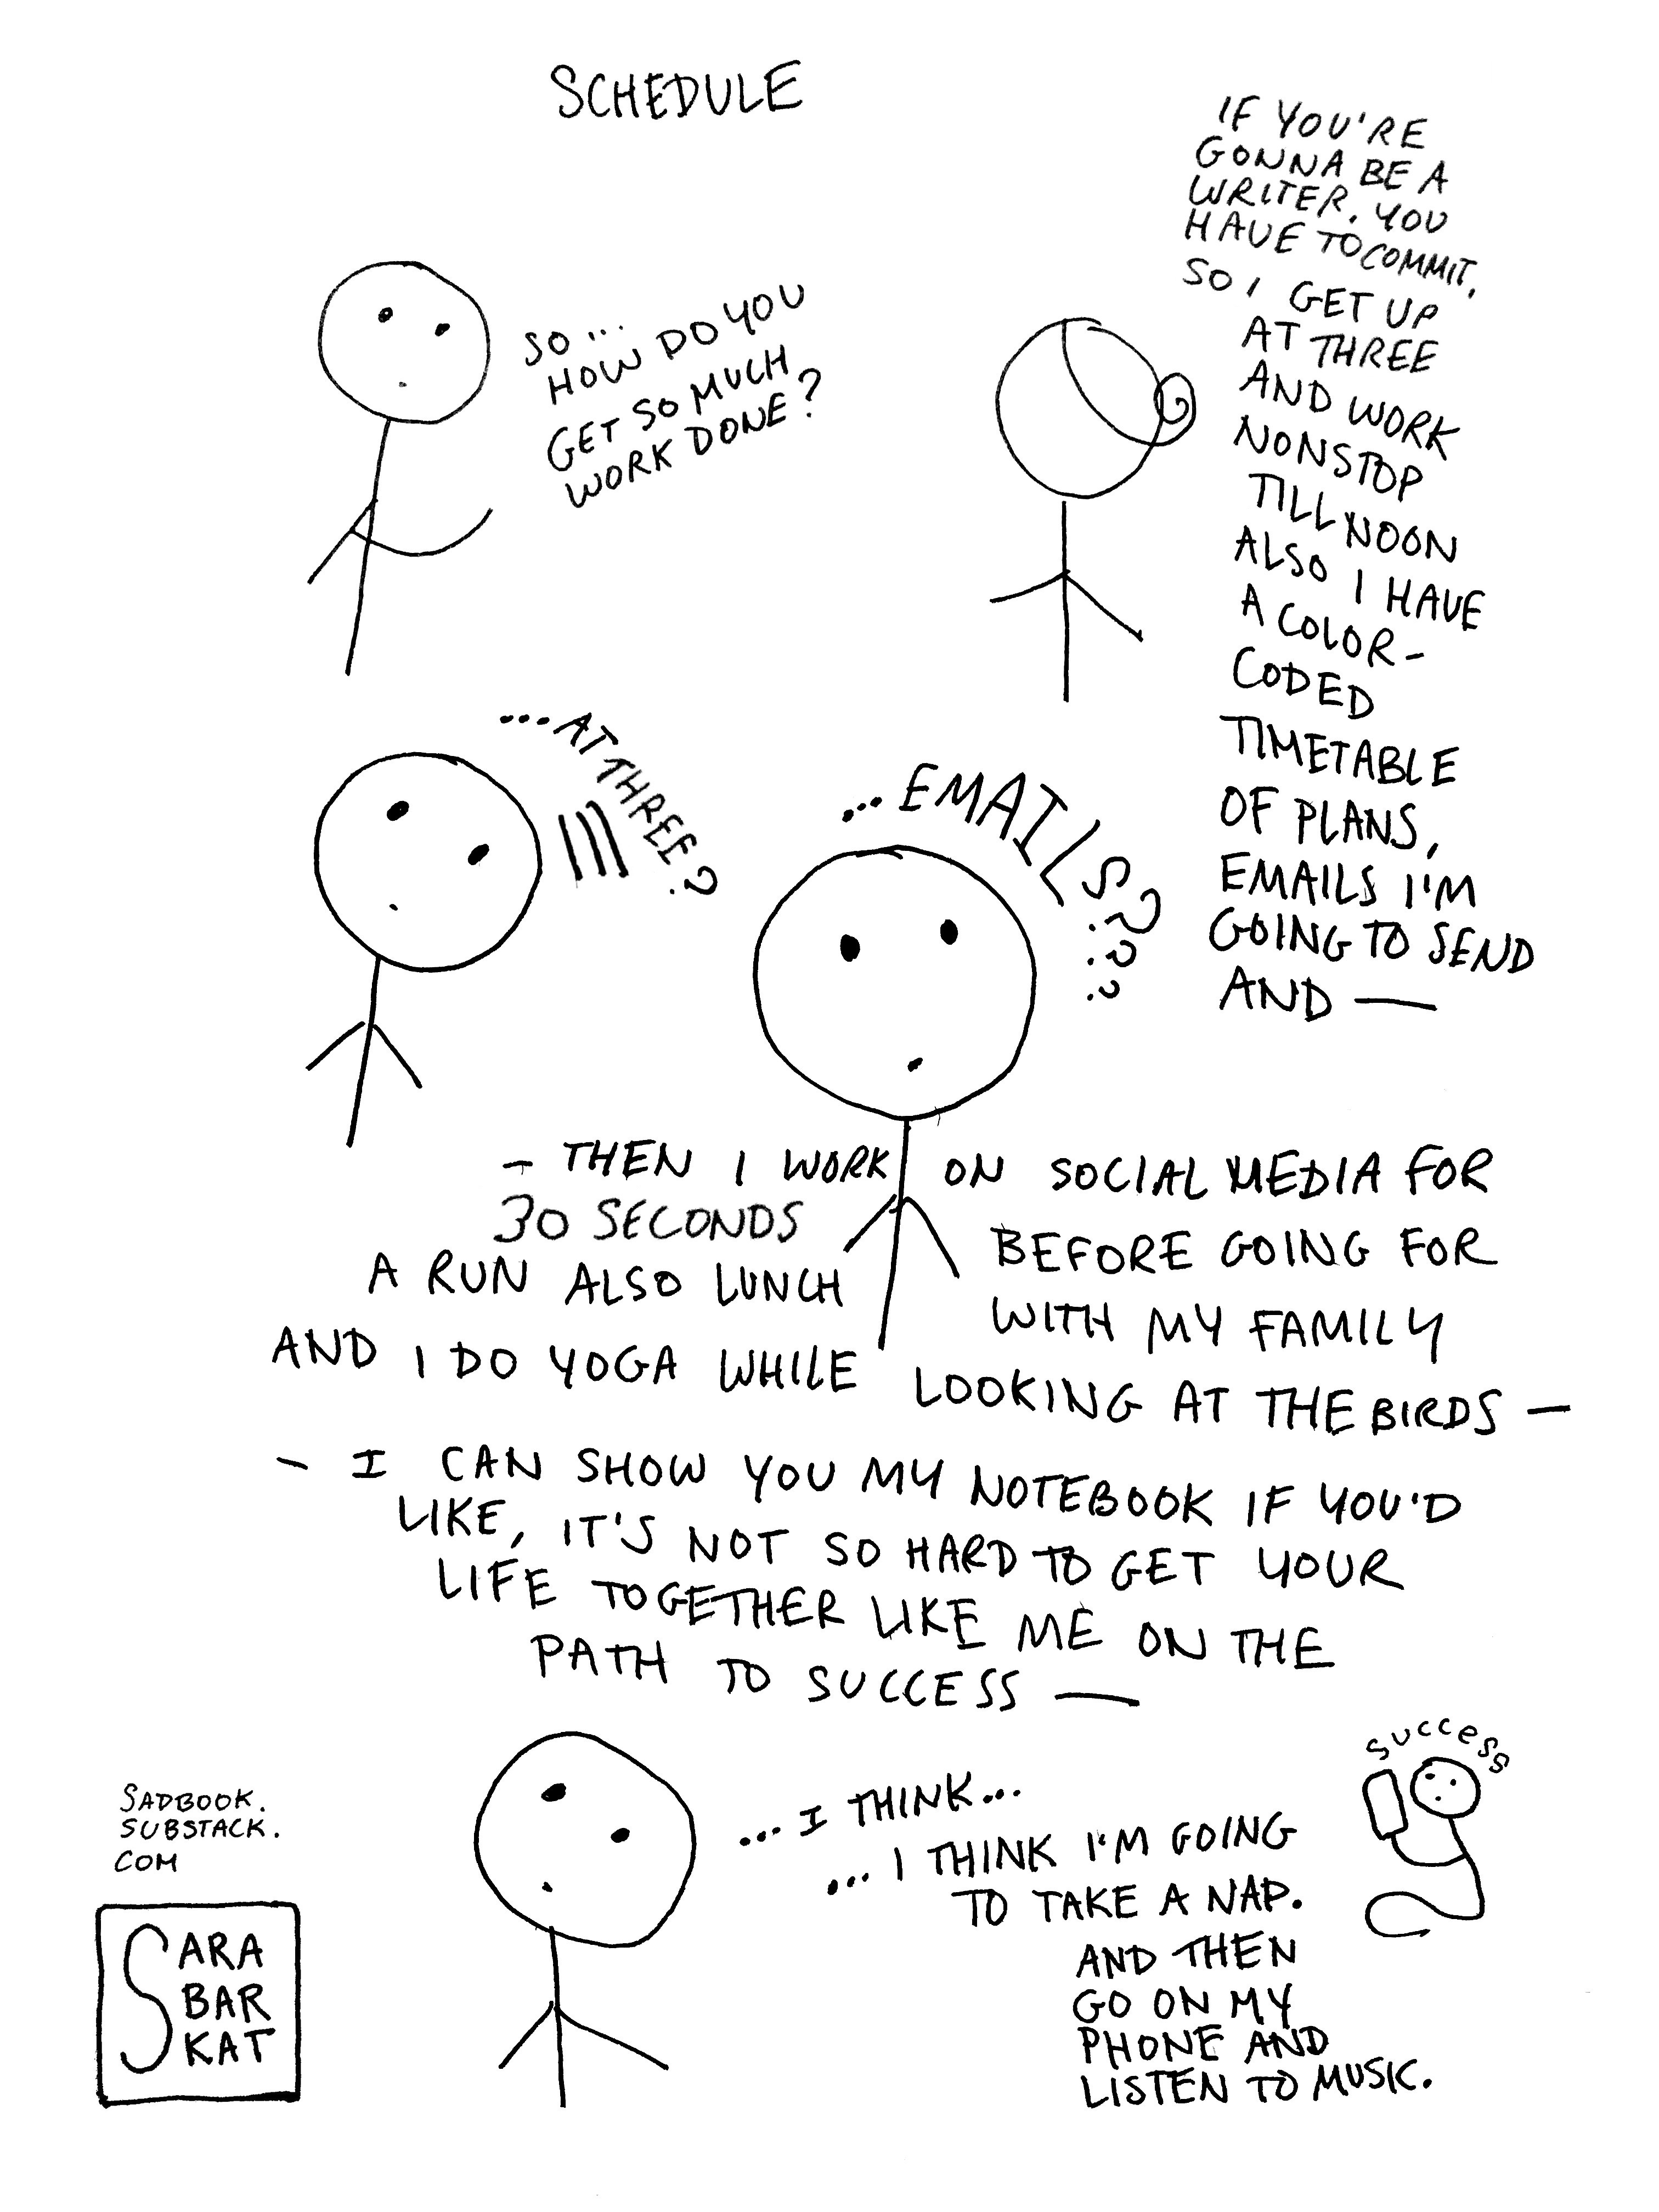 SCHEDULE
SO...
HOW DO YOU
GET SO MUCH
WORK DONE?
IF YOU'RE
GONNA BE A
WRITER, YOU
HAVE TO COMMIT,
SO I GET UP
AT THREE
AND WORK
NONSTOP
TILL NOON
ALSO I HAVE
A COLOR-
CODED
TIMETABLE
OF PLANS,
EMAILS I'M
GOING TO SEND
AND —
...AT THREE?
...EMAILS???
— THEN I WORK ON SOCIAL MEDIA FOR
30 SECONDS BEFORE GOING FOR
A RUN ALSO LUNCH WITH MY FAMILY
AND I DO YOGA WHILE LOOKING AT THE BIRDS —
— I CAN SHOW YOU MY NOTEBOOK IF YOU'D
LIKE, IT'S NOT SO HARD TO GET YOUR
LIFE TOGETHER LIKE ME ON THE
PATH TO SUCCESS —
...I THINK...
...I THINK I'M GOING
TO TAKE A NAP.
AND THEN
GO ON MY
PHONE AND
LISTEN TO MUSIC.
success
SADBOOK.
SUBSTACK.
COM
SARA
BAR
KAT